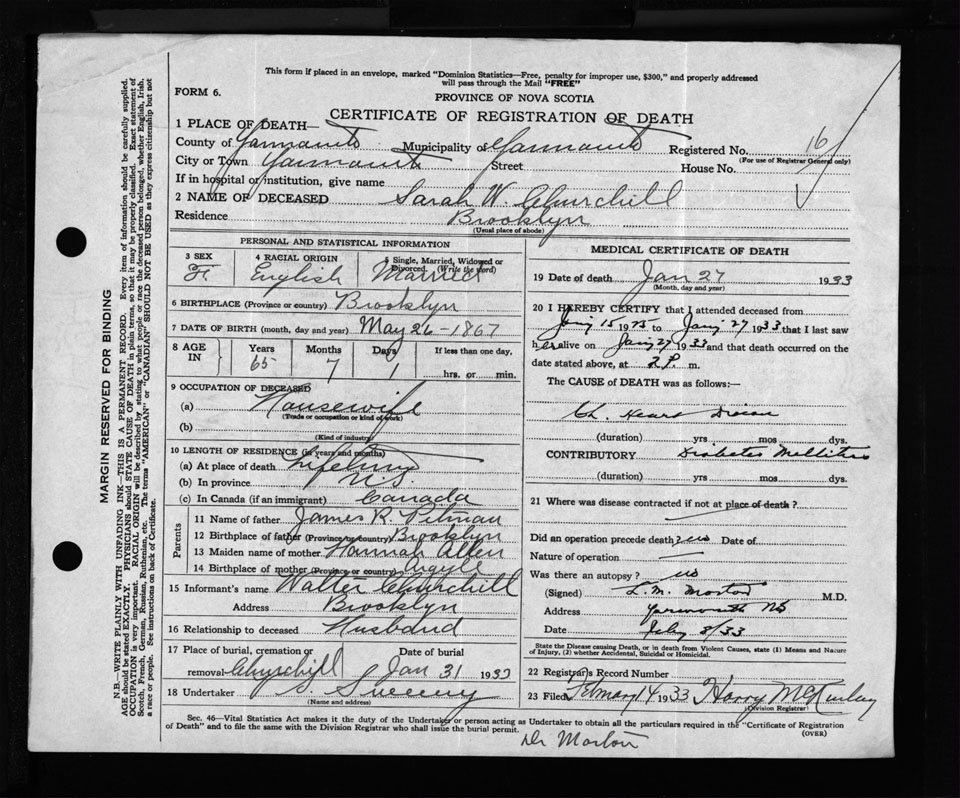 This form if placed in an envelope, marked "Dominion Statistics—Free, penalty for improper use, $300," and properly addressed
will pass through the Mail "FREE"
FORM 6.
PROVINCE OF NOVA SCOTIA
CERTIFICATE OF REGISTRATION OF DEATH
1 PLACE OF DEATH—
County of Yarmouth Municipality of Yarmouth Registered No. 16
(For use of Registrar General only)
City or Town Yarmouth Street House No.
If in hospital or institution, give name
2 NAME OF DECEASED Sarah W. Churchill
Residence Brooklyn
(Usual place of abode)
PERSONAL AND STATISTICAL INFORMATION
3 SEX F. 4 RACIAL ORIGIN English 5 Single, Married, Widowed or Divorced (Write the word) Married
6 BIRTHPLACE (Province or country) Brooklyn
7 DATE OF BIRTH (month, day and year) May 26-1867
8 AGE IN Years 65 Months 7 Days 1 If less than one day, hrs. or min.
9 OCCUPATION OF DECEASED
(a) Housewife
(Trade or occupation or kind of work)
(b)
(Kind of industry)
10 LENGTH OF RESIDENCE (in years and months)
(a) At place of death Lifetime
(b) In province N.S.
(c) In Canada (if an immigrant) Canada
Parents
11 Name of father James R. Pitman
12 Birthplace of father (Province or country) Brooklyn
13 Maiden name of mother Hannah Allen
14 Birthplace of mother (Province or country) Argyle
15 Informant's name Walter Churchill
Address Brooklyn
16 Relationship to deceased Husband
17 Place of burial, cremation or removal Churchill Date of burial Jan 31 1933
18 Undertaker Sweeny
(Name and address)
MEDICAL CERTIFICATE OF DEATH
19 Date of death Jan 27 1933
(Month, day and year)
20 I HEREBY CERTIFY that I attended deceased from
Jany 15 19 to Jany 27 1933 that I last saw
her alive on Jany 27 1933 and that death occurred on the
date stated above, at P. m.
The CAUSE of DEATH was as follows:
Ch. Heart Disease
(duration) yrs mos dys.
CONTRIBUTORY Diabetes Mellitus
(duration) yrs mos dys.
21 Where was disease contracted if not at place of death?
Did an operation precede death? no Date of
Nature of operation —
Was there an autopsy? no
(Signed) L.M. Morton M.D.
Address Yarmouth NS
Date Feby 3/33
State the Disease causing Death, or in death from Violent Causes, state (1) Means and Nature
of Injury, (2) whether Accidental, Suicidal or Homicidal.
22 Registrar's Record Number
23 Filed February 14 1933 Harry McKinley
(Division Registrar)
Sec. 46—Vital Statistics Act makes it the duty of the Undertaker or person acting as Undertaker to obtain all the particulars required in the "Certificate of Registration
of Death" and to file the same with the Division Registrar who shall issue the burial permit.
(OVER)
Dr Morton
MARGIN RESERVED FOR BINDING
N.B.—WRITE PLAINLY WITH UNFADING INK—THIS IS A PERMANENT RECORD. Every item of information should be carefully supplied.
AGE should be stated EXACTLY. PHYSICIANS should STATE CAUSE OF DEATH in plain terms, so that it may be properly classified. Exact statement of
OCCUPATION is very important. RACIAL ORIGIN will be described by stating to what people or race the deceased person belonged, whether English, Irish,
Scotch, French, German, Russian, Ruthenian, etc. The terms "AMERICAN" or "CANADIAN" SHOULD NOT BE USED as they express citizenship but not
a race or people. See instructions on back of Certificate.